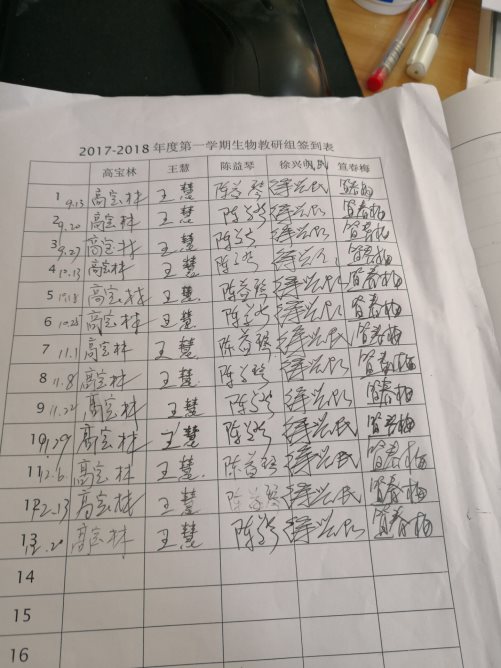 2017-2018 年度第一学期生物教研组签到表
高宝林 王慧 陈益琴 徐兴民 笪春梅
1 9.13 高宝林 王慧 陈益琴 徐兴民 笪春梅
2 9.20 高宝林 王慧 陈益琴 徐兴民 笪春梅
3 9.27 高宝林 王慧 陈益琴 徐兴民 笪春梅
4 10.13 高宝林 王慧 陈益琴 徐兴民 笪春梅
5 10.18 高宝林 王慧 陈益琴 徐兴民 笪春梅
6 10.25 高宝林 王慧 陈益琴 徐兴民 笪春梅
7 11.1 高宝林 王慧 陈益琴 徐兴民 笪春梅
8 11.8 高宝林 王慧 陈益琴 徐兴民 笪春梅
9 11.22 高宝林 王慧 陈益琴 徐兴民 笪春梅
10 高宝林 王慧 陈益琴 徐兴民 笪春梅
11 12.6 高宝林 王慧 陈益琴 徐兴民 笪春梅
12 12.13 高宝林 王慧 陈益琴 徐兴民 笪春梅
13 12.20 高宝林 王慧 陈益琴 徐兴民 笪春梅
14
15
16